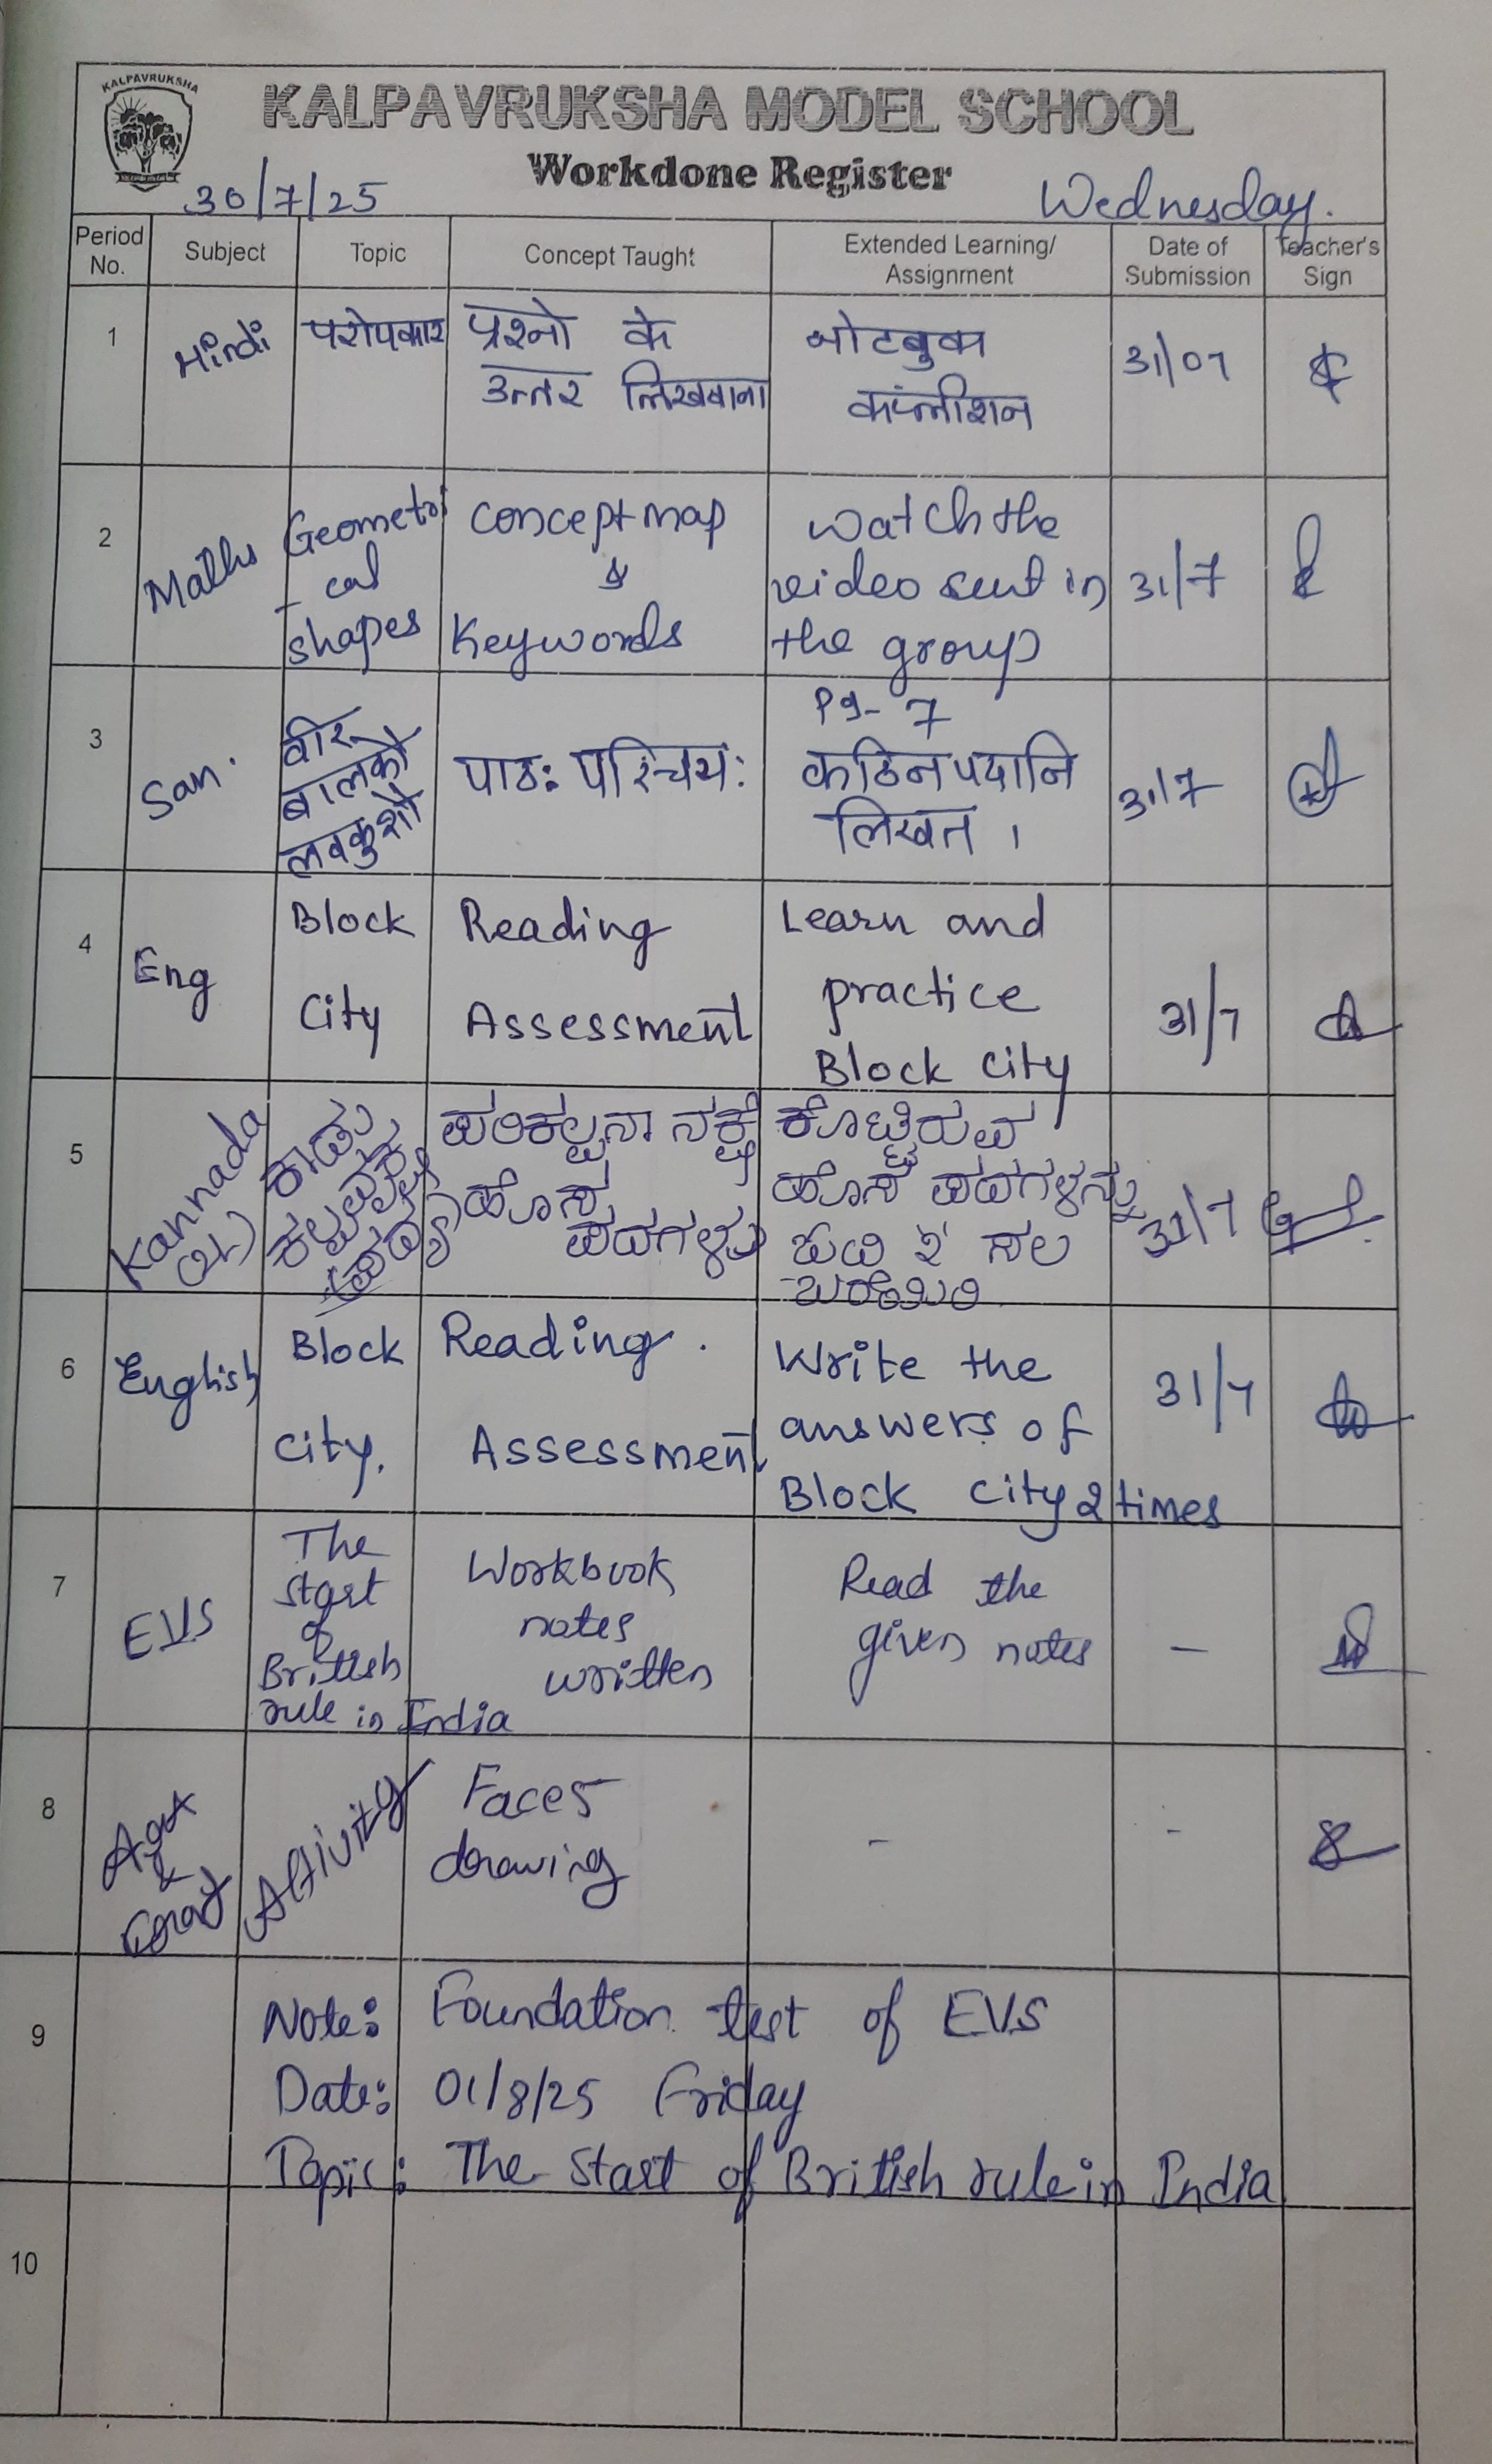 KALPAVRUKSHA
KALPAVRUKSHA MODEL SCHOOL
Workdone Register
30/7/25
Wednesday.
Period No.
Subject
Topic
Concept Taught
Extended Learning/ Assignment
Date of Submission
Teacher's Sign
1
Hindi
परोपकार
प्रश्नो के
उत्तर लिखवाना
नोटबुक
कंप्लीशन
31/07
2
Maths
Geometri
-cal
shapes
Concept map
&
Keywords
Watch the
video sent in
the group
31/7
3
San.
वीर
बालकौ
लवकुशौ
पाठः परिचयः
Pg- 7
कठिन पदानि
लिखत ।
31/7
4
Eng
Block
City
Reading
Assessment
Learn and
practice
Block City
31/7
5
Kannada
(2L)
ಕಾಡು
(ಪದ್ಯ)
ಪರಿಕಲ್ಪನಾ ನಕ್ಷೆ
ಹೊಸ
ಪದಗಳು
ಕೊಟ್ಟಿರುವ
ಹೊಸ ಪದಗಳನ್ನು
ಸಲ
ಬರೆಯಿರಿ
31/7
6
English
Block
City.
Reading.
Assessment
Write the
answers of
Block City 2 times
31/7
7
EVS
The
start
of
British
rule in India
Workbook
notes
written
Read the
given notes
-
8
Art
&
Craft
Activity
Faces
drawing
-
-
9
Note: Foundation test of EVS
Date: 01/8/25 Friday
Topic: The Start of British rule in India
10